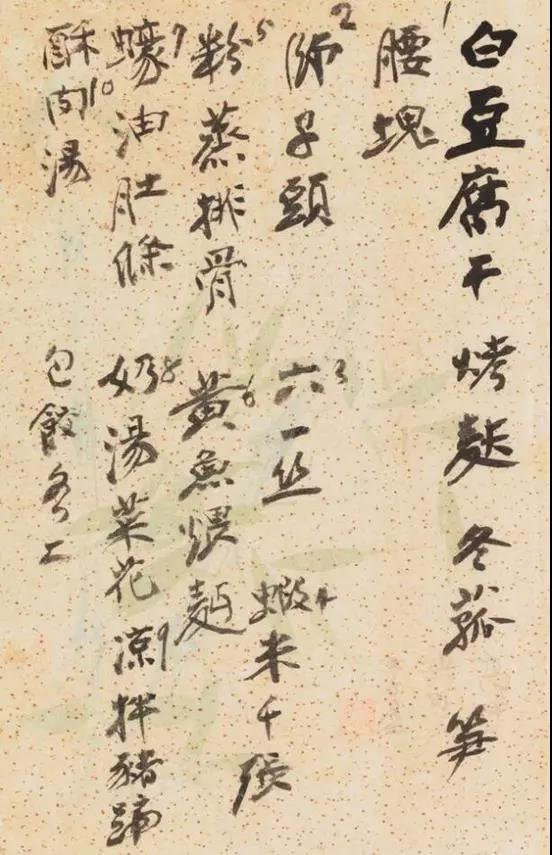 白豆腐干 烤麩 冬菰 笋
腰塊1
師子頭2 六一丝3 蝦米千張4
粉蒸排骨5 黃魚煨麵6
蠔油肚條7 奶湯菜花8 凉拌豬蹄9
酥肉湯10 包餃